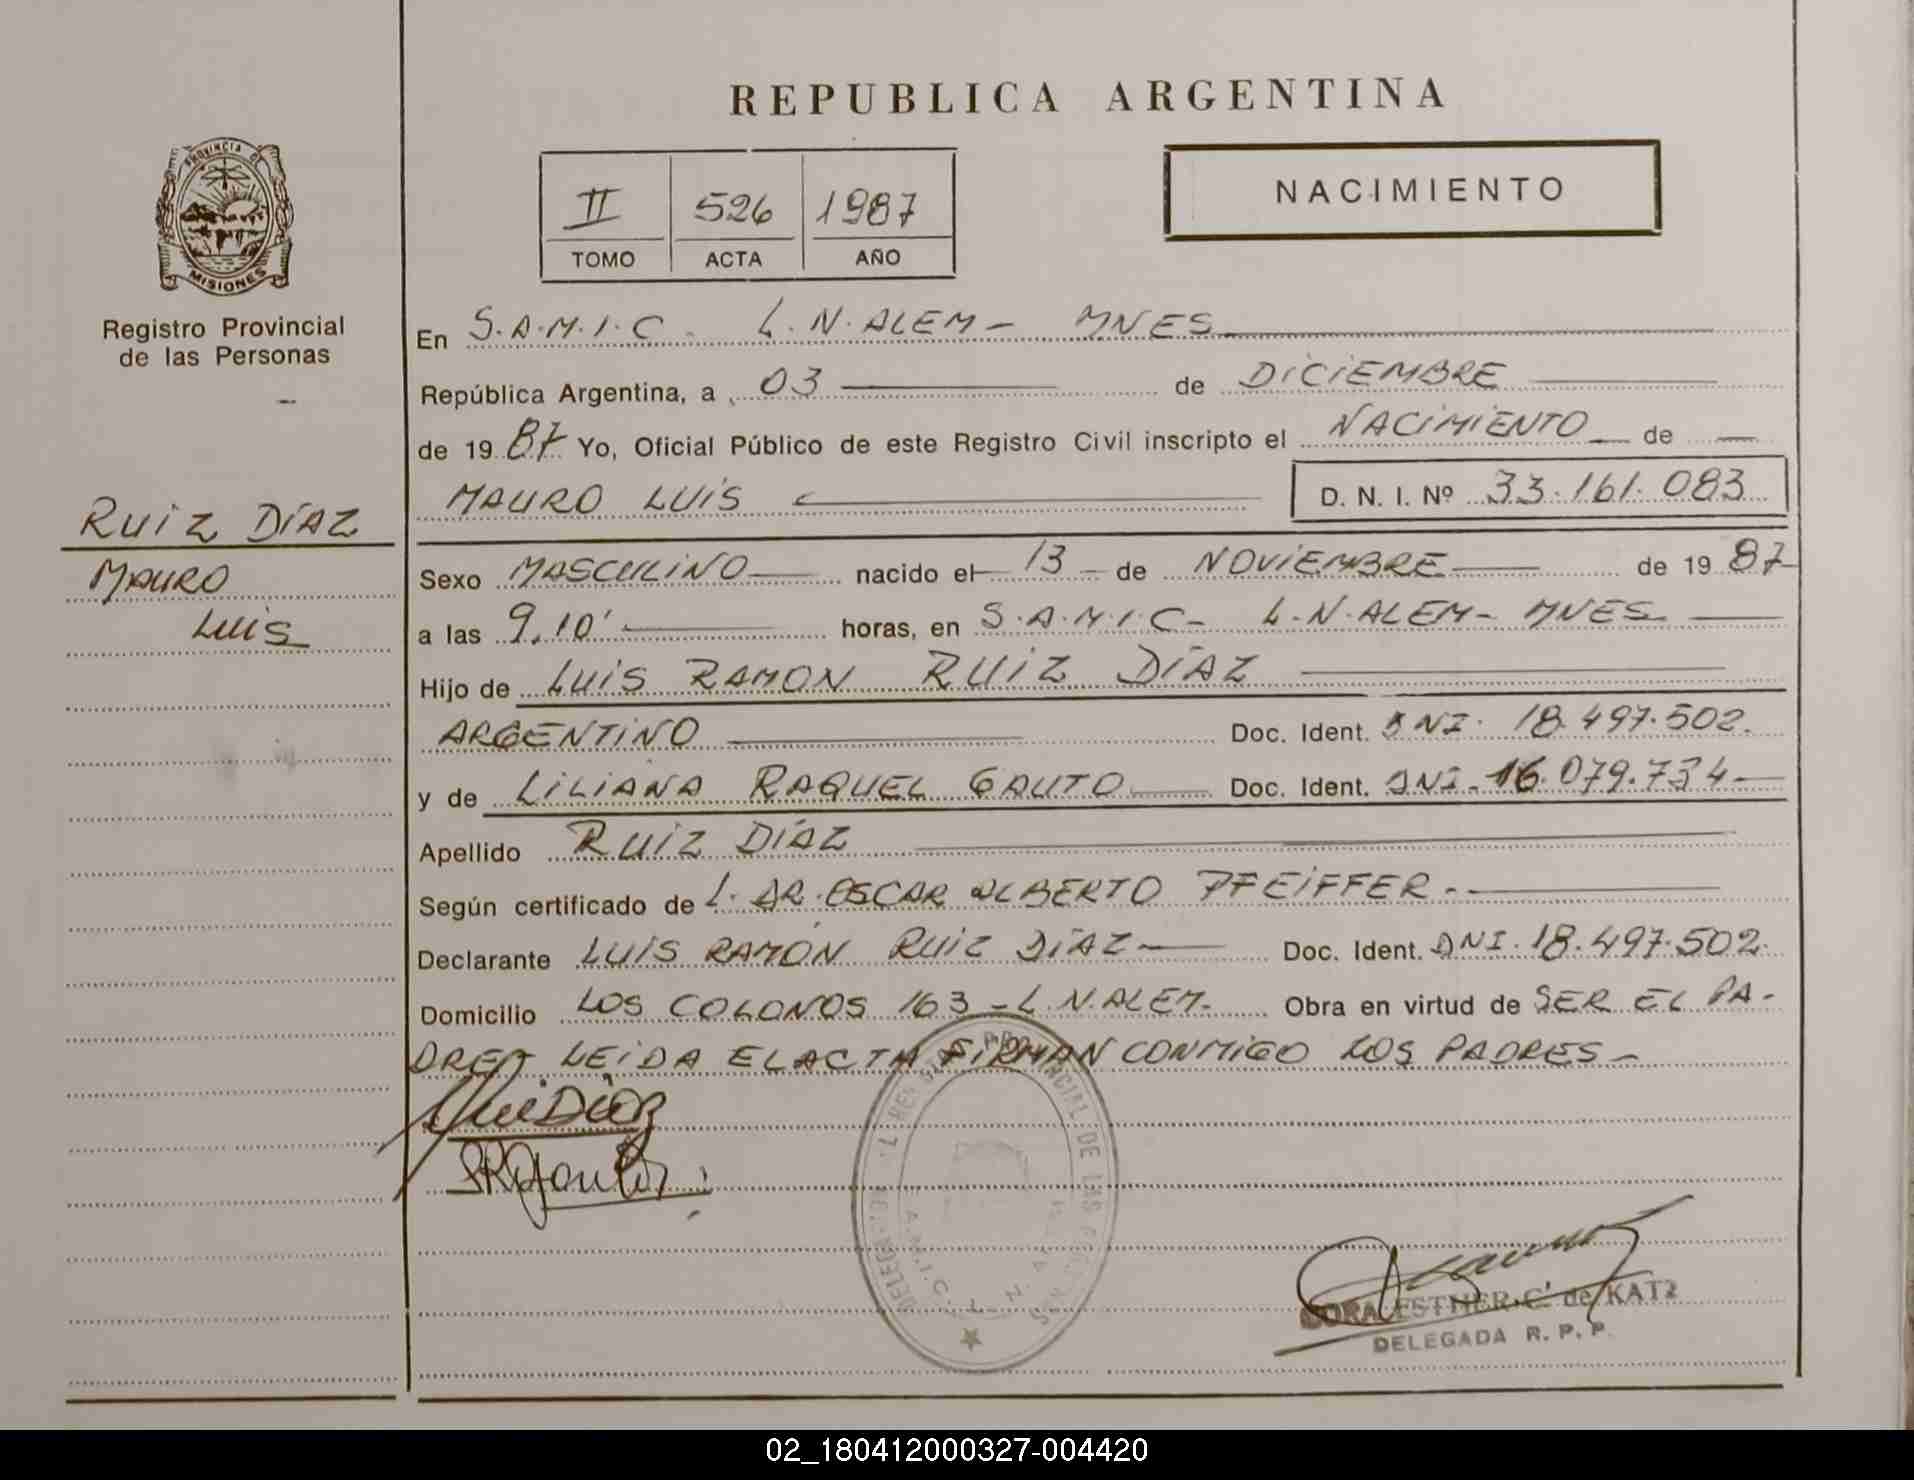 REPUBLICA ARGENTINA
PROVINCIA DE
MISIONES
Registro Provincial
de las Personas
II 526 1987
TOMO ACTA AÑO
NACIMIENTO
En S.A.M.I.C. L.N.ALEM- MNES
República Argentina, a 03 de DICIEMBRE
de 19 87 Yo, Oficial Público de este Registro Civil inscripto el NACIMIENTO de
MAURO LUIS D. N. I. Nº 33.161.083
RUIZ DÍAZ
MAURO
LUIS
Sexo MASCULINO nacido el 13 de NOVIEMBRE de 19 87
a las 9.10' horas, en S.A.M.I.C- L.N.ALEM- MNES
Hijo de LUIS RAMON RUIZ DÍAZ
ARGENTINO Doc. Ident. DNI. 18.497.502.
y de LILIANA RAQUEL GAUTO Doc. Ident. DNI. 16.079.734
Apellido RUIZ DÍAZ
Según certificado de L. DR. OSCAR ALBERTO PFEIFFER.
Declarante LUIS RAMÓN RUIZ DÍAZ Doc. Ident. DNI. 18.497.502.
Domicilio LOS COLONOS 163 - L.N.ALEM. Obra en virtud de SER EL PA-
DRE. LEIDA EL ACTA FIRMAN CONMIGO LOS PADRES-
DELEGACION PROVINCIAL DE LAS
S.A.M.I.C. L. N.
ESTHER C. de KATZ
DELEGADA R. P. P.
02_180412000327-004420